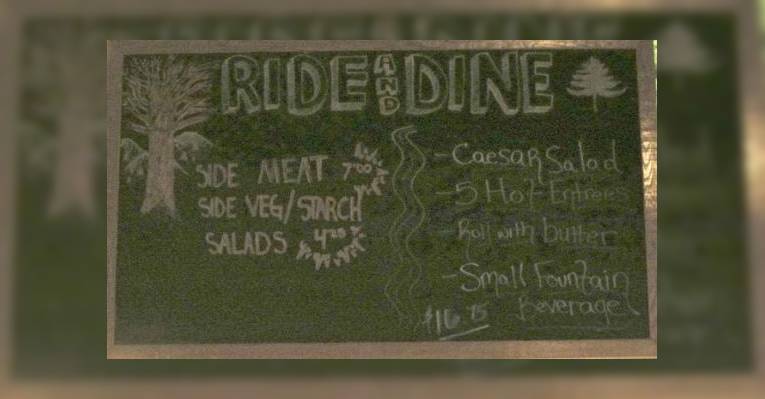 RIDE AND DINE
SIDE MEAT 7.00
SIDE VEG/STARCH
SALADS 4.20
- Caesar Salad
- 5 Hot Entrees
- Roll with butter
- Small Fountain
Beverage
$16.75